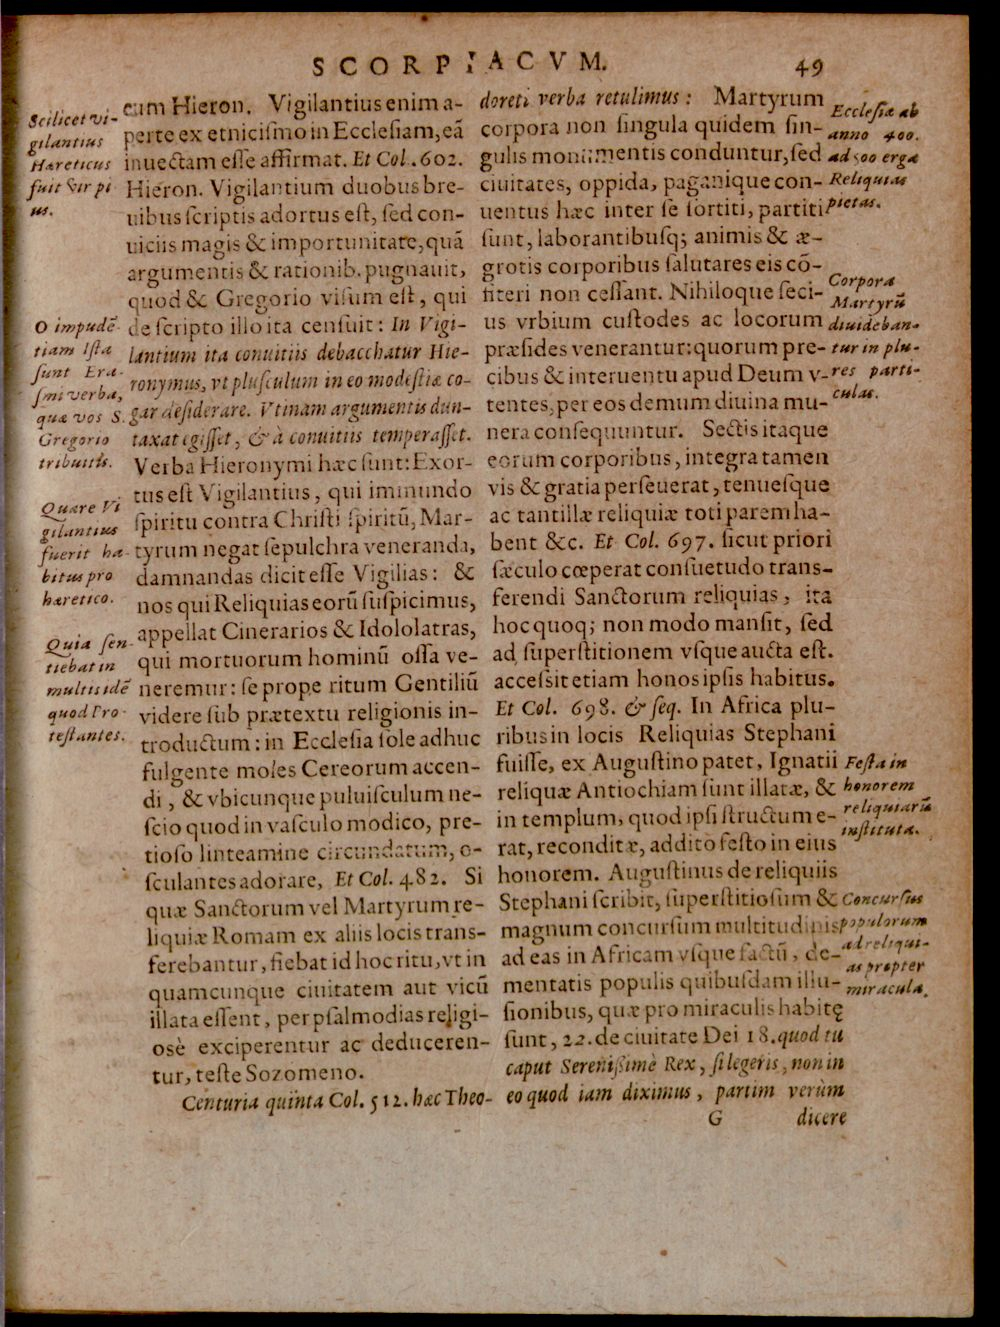 SCORPIACVM. 49
Scilicet vi-
gilantius
Hæreticus
fuit vir pi
us.
O impudē-
tiam Ista
sunt Era-
smi verba,
quæ vos S.
Gregorio
tribuitis.
Quare Vi
gilantius
fuerit ha-
bitus pro
hæretico.
Quia sen
tiebat in
multis idē
quod Pro-
testantes.
cum Hieron. Vigilantius enim a-
perte ex etnicismo in Ecclesiam, eā
inuectam esse affirmat. Et Col. 602.
Hieron. Vigilantium duobus bre-
uibus scriptis adortus est, sed con-
uiciis magis & importunitate, quā
argumentis & rationib. pugnauit,
quod & Gregorio visum est, qui
de scripto illo ita censuit: In Vigi-
lantium ita conuitiis debacchatur Hie-
ronymus, vt plusculum in eo modestiæ co-
gar desiderare. Vtinam argumentis dun-
taxat egisset, & à conuitiis temperasset.
Verba Hieronymi hæc sunt: Exor-
tus est Vigilantius, qui immundo
spiritu contra Christi spiritū, Mar-
tyrum negat sepulchra veneranda,
damnandas dicit esse Vigilias: &
nos qui Reliquias eorū suspicimus,
appellat Cinerarios & Idololatras,
qui mortuorum hominū ossa ve-
neremur: se prope ritum Gentiliū
videre sub prætextu religionis in-
troductum: in Ecclesia sole adhuc
fulgente moles Cereorum accen-
di, & vbicunque puluisculum ne-
scio quod in vasculo modico, pre-
tioso linteamine circundatum, o-
sculantes adorare, Et Col. 482. Si
quæ Sanctorum vel Martyrum re-
liquiæ Romam ex aliis locis trans-
ferebantur, fiebat id hoc ritu, vt in
quamcunque ciuitatem aut vicū
illata essent, per psalmodias religi-
osè exciperentur ac deduceren-
tur, teste Sozomeno.
Centuria quinta Col. 512. hæc Theo-
doreti verba retulimus: Martyrum
corpora non singula quidem sin-
gulis monumentis conduntur, sed
ciuitates, oppida, paganique con-
uentus hæc inter se sortiti, partiti
sunt, laborantibusq; animis & æ-
grotis corporibus salutares eis cō-
fiteri non cessant. Nihiloque seci-
us vrbium custodes ac locorum
præsides venerantur: quorum pre-
cibus & interuentu apud Deum v-
tentes, per eos demum diuina mu-
nera consequuntur. Sectis itaque
eorum corporibus, integra tamen
vis & gratia perseuerat, tenuesque
ac tantillæ reliquiæ toti parem ha-
bent &c. Et Col. 697. sicut priori
sæculo cœperat consuetudo trans-
ferendi Sanctorum reliquias, ita
hoc quoq; non modo mansit, sed
ad superstitionem vsque aucta est.
accessit etiam honos ipsis habitus.
Et Col. 698. & seq. In Africa plu-
ribus in locis Reliquias Stephani
fuisse, ex Augustino patet, Ignatii
reliquæ Antiochiam sunt illatæ, &
in templum, quod ipsi structum e-
rat, reconditæ, addito festo in eius
honorem. Augustinus de reliquiis
Stephani scribit, superstitiosum &
magnum concursum multitudinis
ad eas in Africam vsque factū, de-
mentatis populis quibusdam illu-
sionibus, quæ pro miraculis habitę
sunt, 22. de ciuitate Dei 18. quod tu
caput Serenissimè Rex, si legeris, non in
eo quod iam diximus, partim verùm
G dicere
Ecclesiæ ab
anno 400.
ad 500 erga
Reliquias
pietas.
Corpora
Martyrū
diuideban-
tur in plu-
res parti-
culas.
Festa in
honorem
reliquiarū
instituta.
Concursus
populorum
ad reliqui-
as propter
miracula.